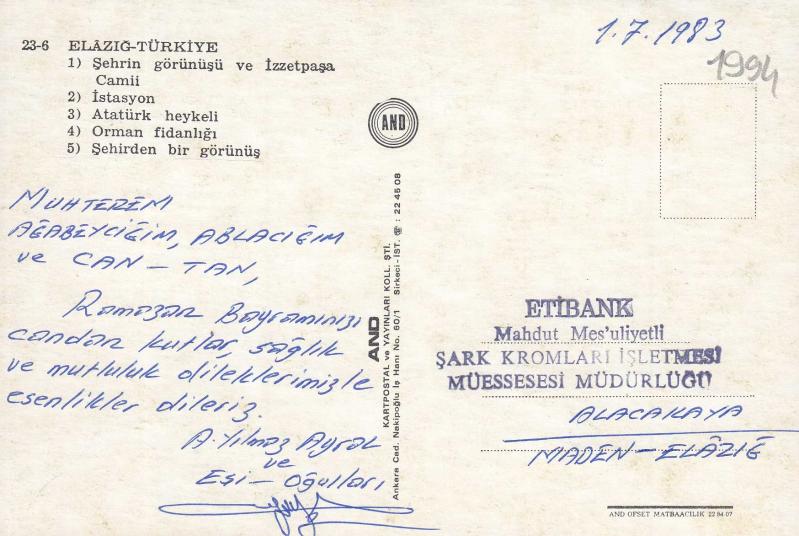 23-6 ELÂZIĞ-TÜRKİYE
1) Şehrin görünüşü ve İzzetpaşa
Camii
2) İstasyon
3) Atatürk heykeli
4) Orman fidanlığı
5) Şehirden bir görünüş
1.7.1983
1994
AND
MUHTEREM
AĞABEYCİĞİM, ABLACIĞIM
ve CAN-TAN,
Ramazan Bayramınızı
candan kutlar, sağlık
ve mutluluk dileklerimizle
esenlikler dileriz.
A. Yılmaz Ayral
ve
Eşi - Oğulları
AND
KARTPOSTAL ve YAYINLARI KOLL. ŞTİ.
Ankara Cad. Nakipoğlu İş Hanı No. 60/1 Sirkeci-İST. ☎ : 22 45 08
ETİBANK
Mahdut Mes'uliyetli
ŞARK KROMLARI İŞLETMESİ
MÜESSESESİ MÜDÜRLÜĞÜ
ALACAKAYA
MADEN-ELÂZIĞ
AND OFSET MATBAACILIK 22 84 07